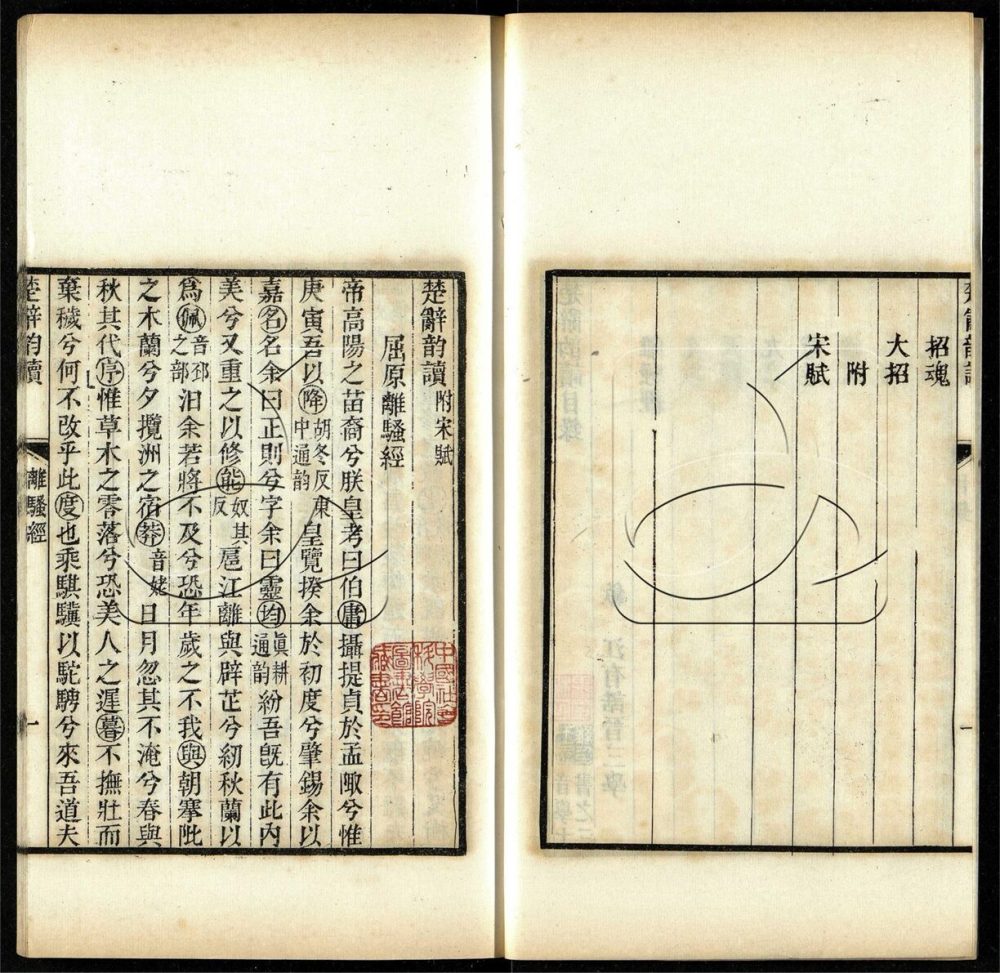 楚辭韵讀
招魂
大招
附
宋賦
一
楚辭韵讀附宋賦
屈原離騷經
帝高陽之苗裔兮朕皇考曰伯庸攝提貞於孟陬兮惟
庚寅吾以降胡冬反東中通韵皇覽揆余於初度兮肇錫余以
嘉名名余曰正則兮字余曰靈均眞耕通韵紛吾旣有此內
美兮又重之以修能奴其反扈江離與辟芷兮紉秋蘭以
爲佩音邳之部汩余若將不及兮恐年歲之不我與朝搴阰
之木蘭兮夕攬洲之宿莽音姥日月忽其不淹兮春與
秋其代序惟草木之零落兮恐美人之遲暮不撫壯而
棄穢兮何不改乎此度也乘騏驥以駝騁兮來吾道夫
楚辭韵讀 離騷經 一
中國社會
科學院
圖書館
藏書印